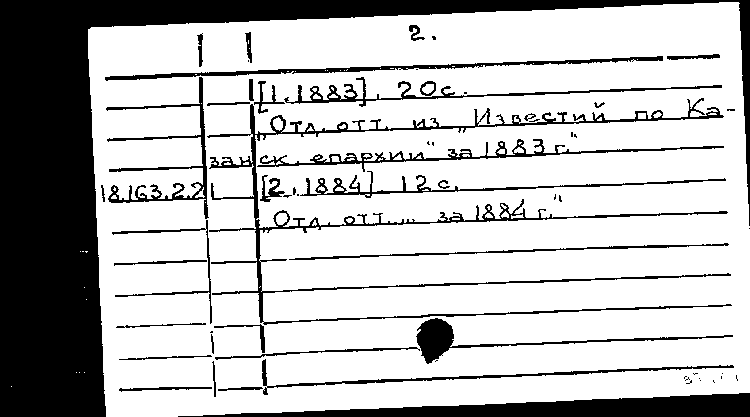 2.
[1.1883]. 20с.
„Отд. отт. из „Известий по Ка-
занск. епархии" за 1883 г."
18.163.2.2 [2.1884]. 12с.
„Отд. отт. ... за 1884 г."